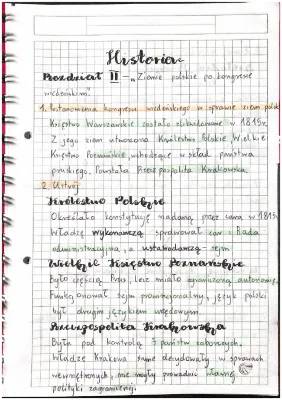 Historia
Rozdział II "Ziemie polskie po kongresie
wiedeńskim"
1. Postanowienia kongresu wiedeńskiego w sprawie ziem polsk
Księstwo Warszawskie zostało zlikwidowane w 1815r.
Z jego ziem utworzono Królestwo Polskie, Wielkie
Księstwo Poznańskie, wchodzące w skład państwa
pruskiego. Powstała Rzeczpospolita Krakowska.
2. Ustrój
Królestwo Polskie
Określała konstytucja nadana przez cara w 1815r
Władzę wykonawczą sprawował car i Rada
administracyjna, a ustawodawczą - sejm
Wielkie Księstwo Poznańskie
Było częścią Prus, lecz miało ograniczoną autonomię.
Funkcjonował sejm prowincjonalny, język polski
był drugim językiem urzędowym.
Rzeczpospolita Krakowska
Była pod kontrolą 3 państw zaborczych.
Władze Krakowa same decydowały w sprawach
wewnętrznych, nie mogły prowadzić własnej
polityki zagranicznej.